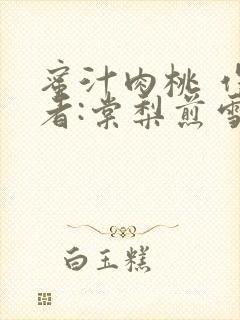 蜜汁肉桃
者:棠梨煎雪
白玉糕